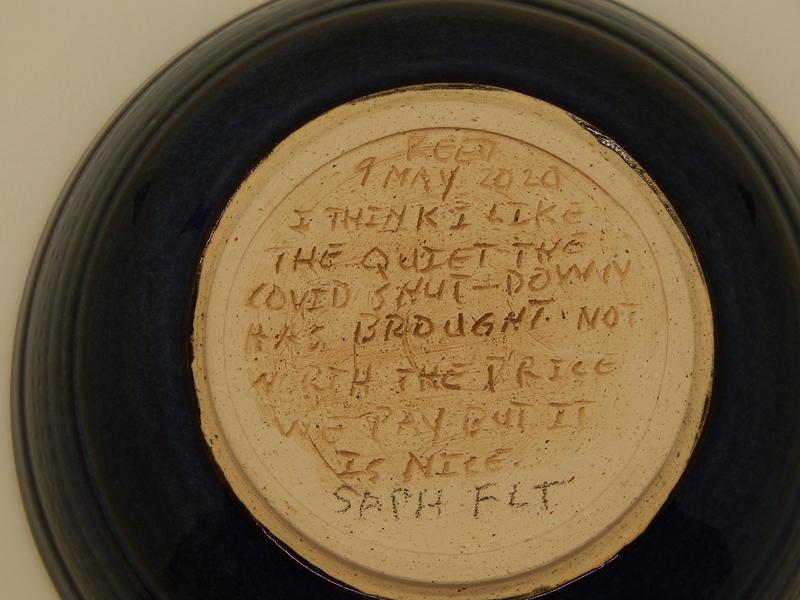 REED
9 MAY 2020
I THINK I LIKE
THE QUIET THE
COVID SHUT-DOWN
HAS BROUGHT. NOT
THE PRICE
WE PAY BUT IT
IS NICE.
SAPH FLT